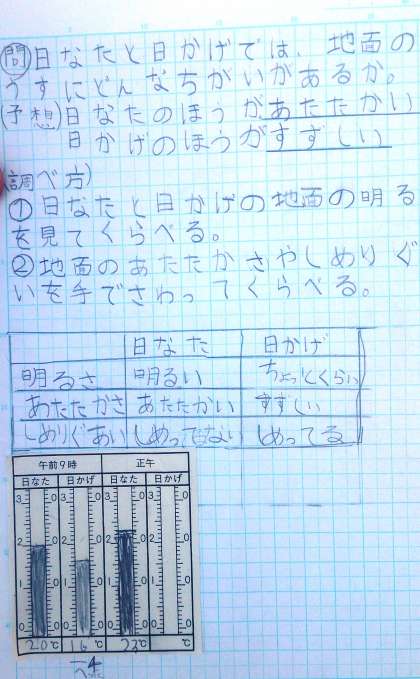 問 日なたと日かげでは、地面の
うすにどんなちがいがあるか。
(予想)日なたのほうがあたたかい
日かげのほうがすずしい
調べ方)
①日なたと日かげの地面の明る
を見てくらべる。
②地面のあたたかさやしめりぐ
いを手でさわってくらべる。
日なた 日かげ
明るさ 明るい ちょっとくらい
あたたかさ あたたかい すずしい
しめりぐあい しめってない しめってる
午前9時 正午
日なた 日かげ 日なた 日かげ
3 0 3 0 3 0 3 0
2 0 2 0 2 0 2 0
1 0 1 0 1 0 1 0
0 0 0 0
20℃ 16℃ 23℃ ℃